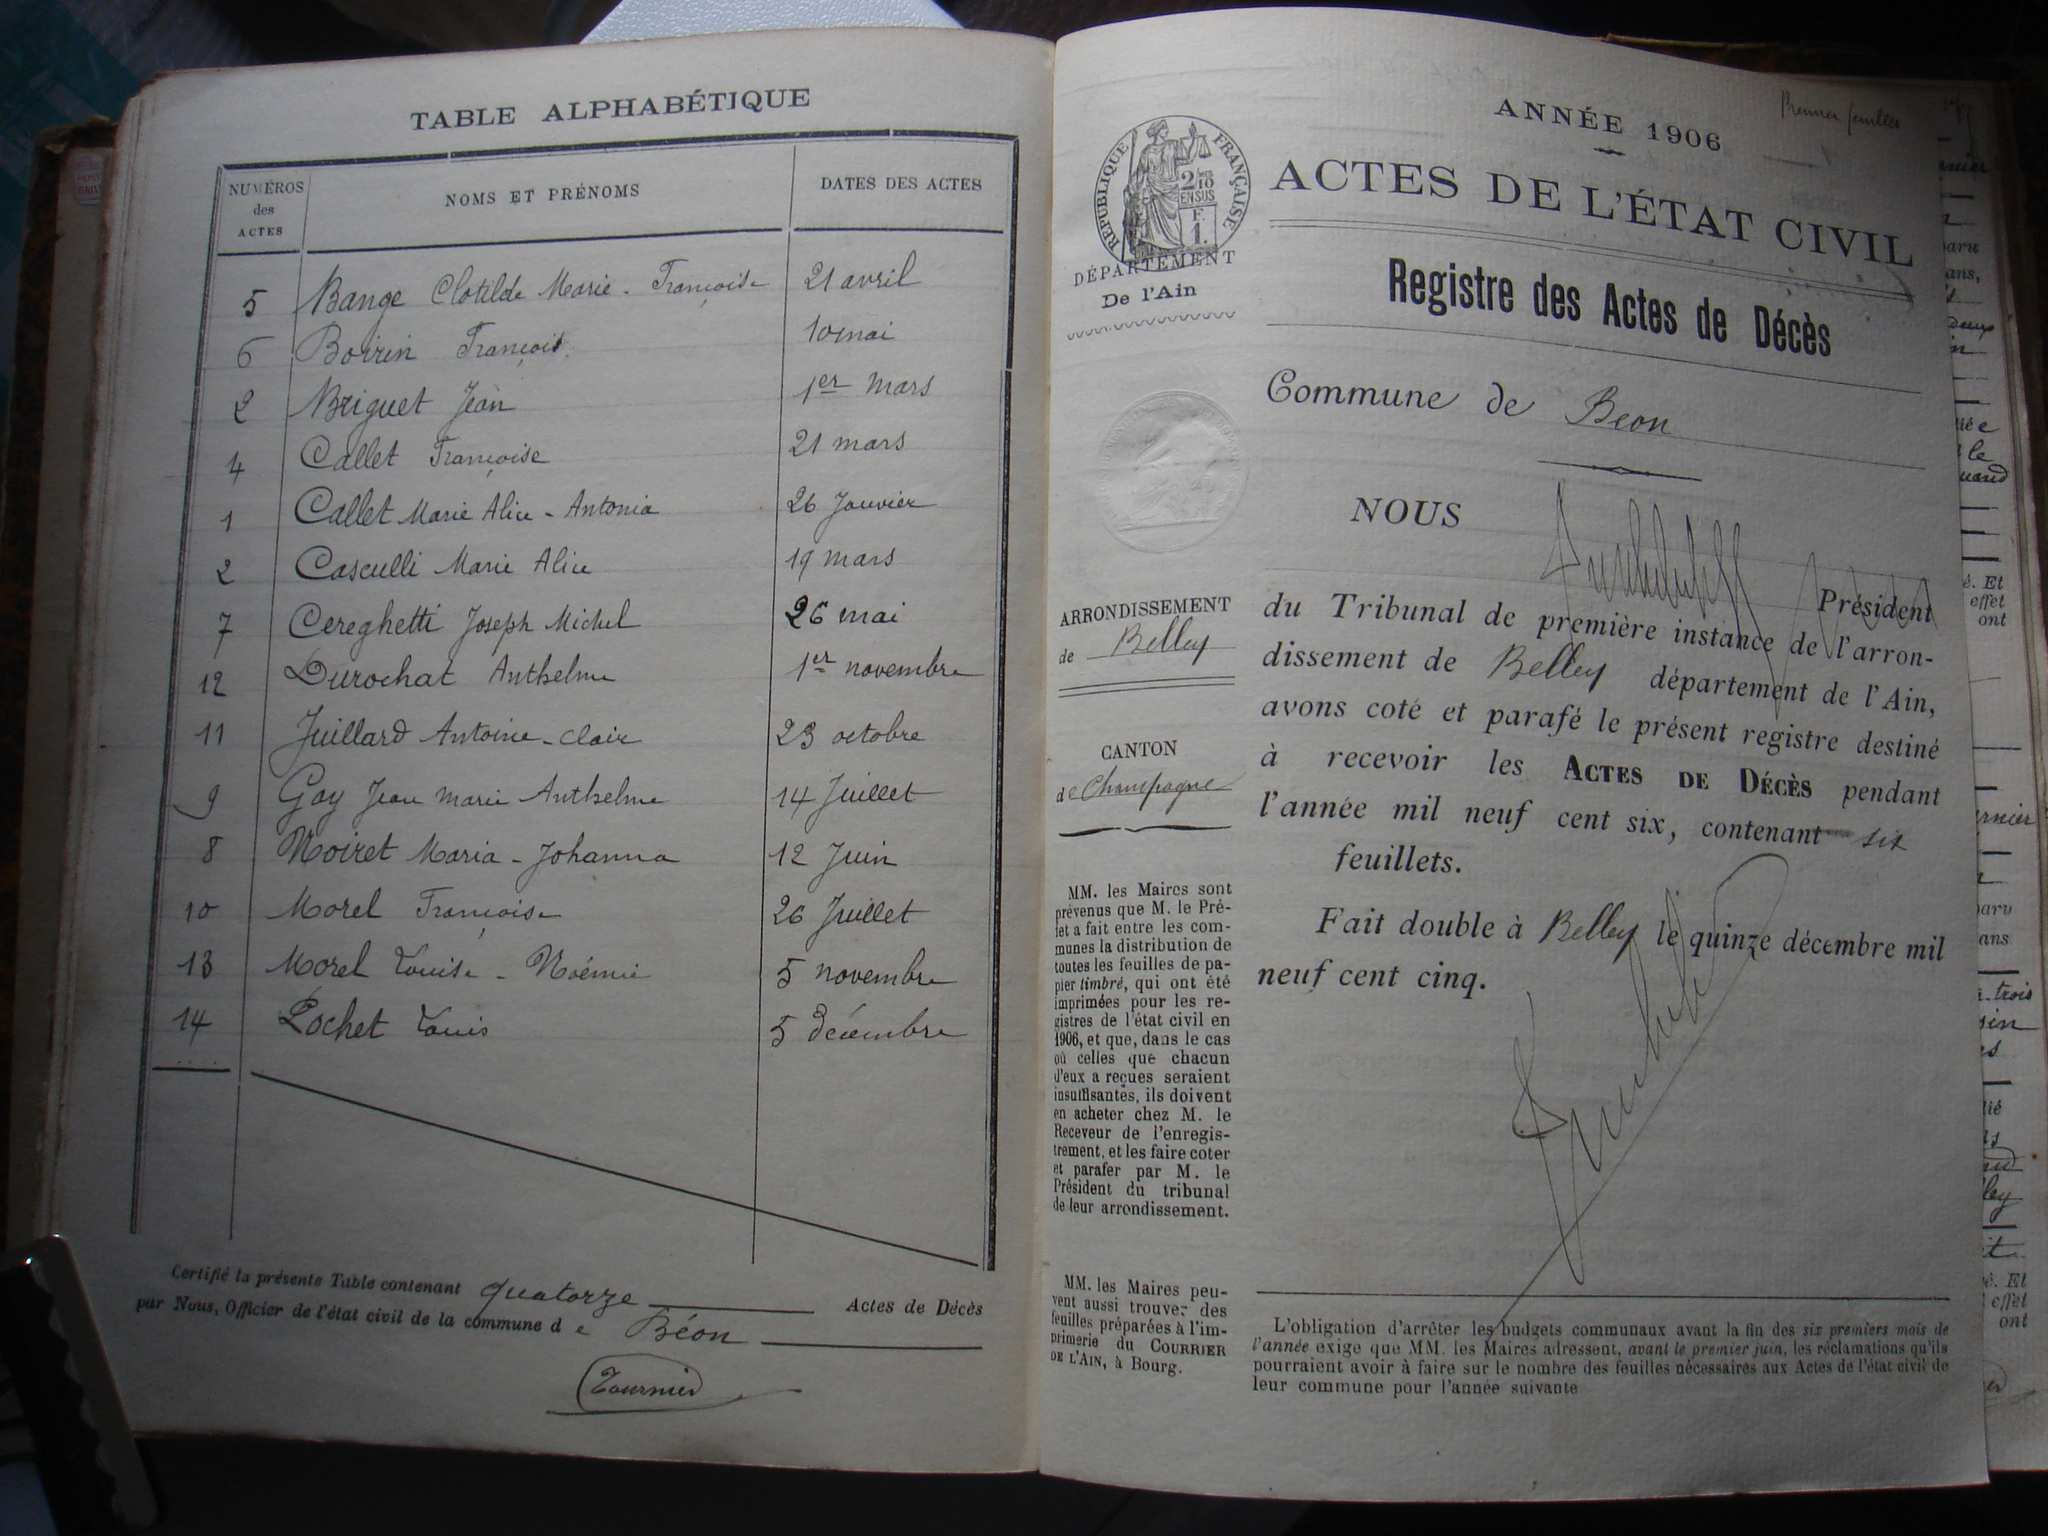 TABLE ALPHABÉTIQUE
NUMÉROS des ACTES NOMS ET PRÉNOMS DATES DES ACTES
5 Bange Clotilde Marie - Françoise 21 avril
6 Boirin François 10 mai
2 Briguet Jean 1er mars
4 Callet Françoise 21 mars
1 Callet Marie Alice - Antonia 26 Janvier
2 Casculli Marie Alice 19 mars
7 Cereghetti Joseph Michel 26 mai
12 Durochat Anthelme 1er novembre
11 Juillard Antoine - clair 23 octobre
9 Goy Jean marie Anthelme 14 Juillet
8 Noiret Maria - Johanna 12 Juin
10 Morel Françoise 26 Juillet
13 Morel Louise - Noémie 5 novembre
14 Pochet Louis 5 décembre
Certifié la présente Table contenant quatorze Actes de Décès
par Nous, Officier de l'état civil de la commune de Béon
Tournier
Premier feuillet
ANNÉE 1906
RÉPUBLIQUE FRANÇAISE
2/10 EN SUS
F. 1.
ACTES DE L'ÉTAT CIVIL
DÉPARTEMENT
De l'Ain
Registre des Actes de Décès
Commune de Beon
NOUS
Président
du Tribunal de première instance de l'arron-
dissement de Belley département de l'Ain,
avons coté et parafé le présent registre destiné
à recevoir les ACTES DE DÉCÈS pendant
l'année mil neuf cent six, contenant six
feuillets.
Fait double à Belley le quinze décembre mil
neuf cent cinq.
ARRONDISSEMENT
de Belley
CANTON
de Champagne
MM. les Maires sont
prévenus que M. le Pré-
fet a fait entre les com-
munes la distribution de
toutes les feuilles de pa-
pier timbré, qui ont été
imprimées pour les re-
gistres de l'état civil en
1906, et que, dans le cas
où celles que chacun
d'eux a reçues seraient
insuffisantes, ils doivent
en acheter chez M. le
Receveur de l'enregis-
trement, et les faire coter
et parafer par M. le
Président du tribunal
de leur arrondissement.
MM. les Maires peu-
vent aussi trouver des
feuilles préparées à l'im-
primerie du COURRIER
DE L'AIN, à Bourg.
L'obligation d'arrêter les budgets communaux avant la fin des six premiers mois de
l'année exige que MM. les Maires adressent, avant le premier juin, les réclamations qu'ils
pourraient avoir à faire sur le nombre des feuilles nécessaires aux Actes de l'état civil de
leur commune pour l'année suivante